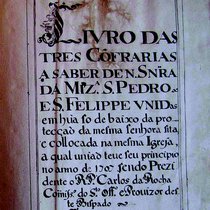 LIVRO DAS
TRES COFRARIAS
A SABER DE N. SNRA
DA MIZ.ª S. PEDRO
E S. FELIPPE UNIDas
em huã so de baixo da pro-
tecçaõ da mesma senhora sita,
e collocada na mesma Igreja,
a qual uniaõ teue seu principio
no anno de 1707 sendo Prezi-
dente o R.do Carlos da Rocha
Comiss.º do S.to Off.º e Prouizor des
te Bispado